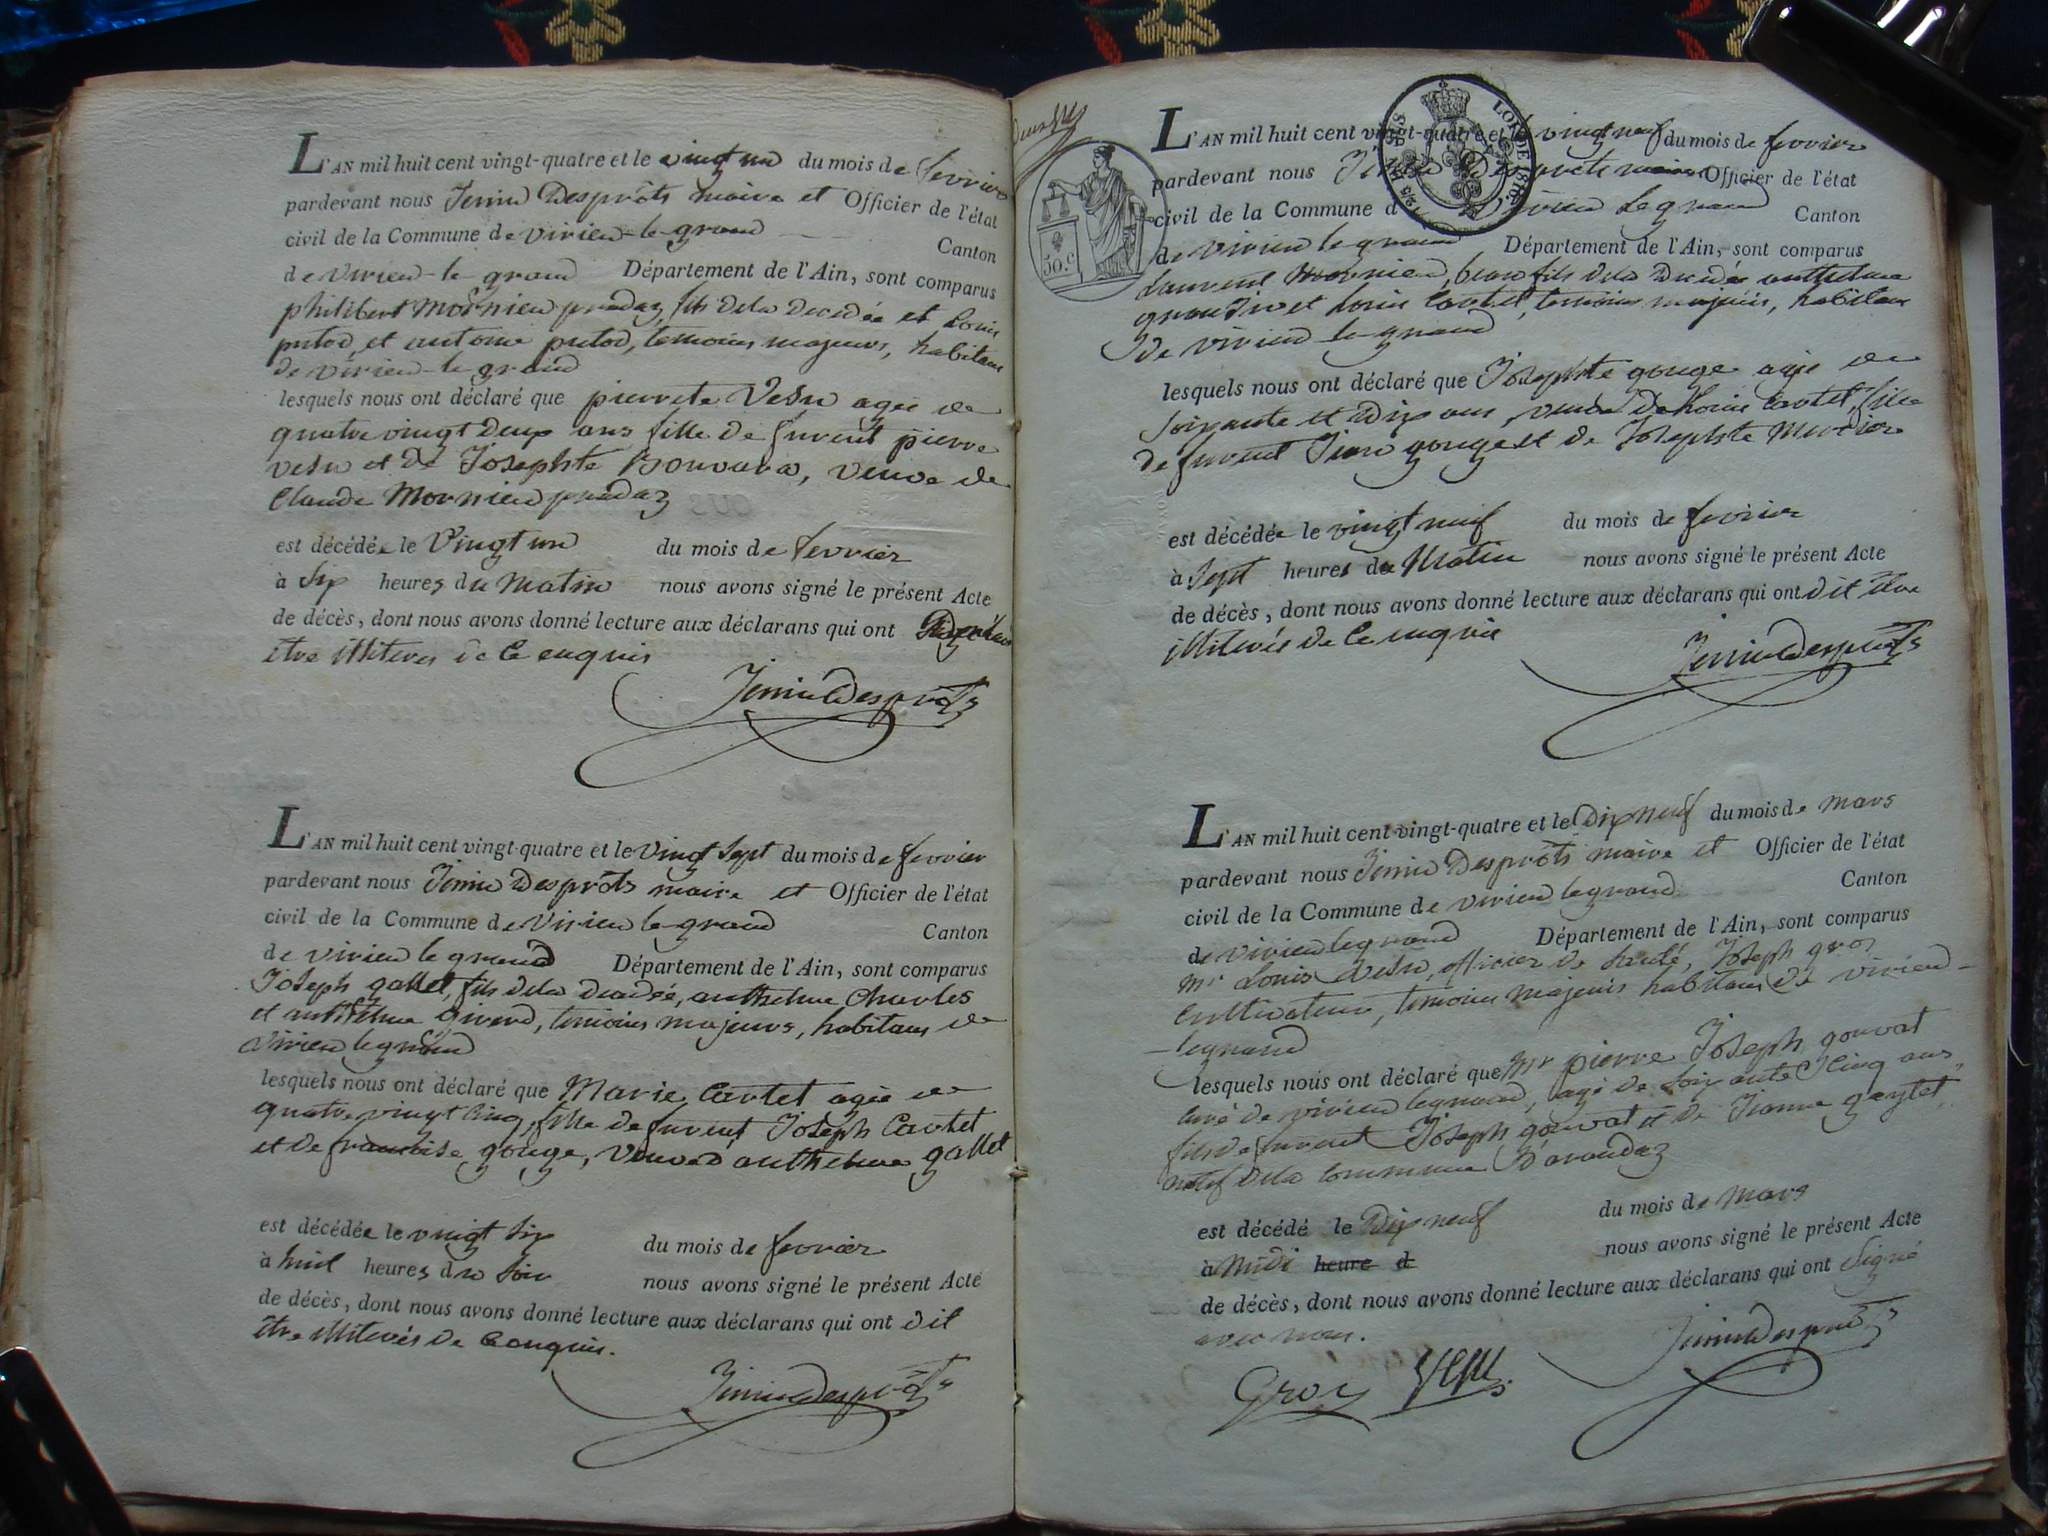 L'AN mil huit cent vingt-quatre et le vingt un du mois de fevrier
pardevant nous Jenin Desprôts maire et Officier de l'état
civil de la Commune de virieu-le-grand Canton
de virieu-le grand Département de l'Ain, sont comparus
philibert Mornieu pradaz, fils dela decedée et Louis
putod, et antoine putod, temoins majeurs, habitans
de virieu-le grand
lesquels nous ont déclaré que pierrete Vesu agée de
quatre vingt deux ans fille de furent pierre
vesu et de Josephte Bouvard, veuve de
Claude Mornieu pradaz
est décédée le Vingt un du mois de fevrier
à six heures du matin nous avons signé le présent Acte
de décès, dont nous avons donné lecture aux déclarans qui ont
être illiterés de ce enquis
Jenin Desprôts
L'AN mil huit cent vingt-quatre et le vingt sept du mois de fevrier
pardevant nous Jenin Desprôts maire et Officier de l'état
civil de la Commune de Virieu le-grand Canton
de virieu le grand Département de l'Ain, sont comparus
Joseph gallet, fils dela decedée, anthelme Charles
et anthelme girerd, temoins majeurs, habitans de
Virieu le grand
lesquels nous ont déclaré que Marie Cartet agée de
quatre vingt cinq, fille de furent Joseph Cartet
et de francoise gouge, veuve d'anthelme gallet
est décédée le vingt six du mois de fevrier
à huit heures du soir nous avons signé le présent Acte
de décès, dont nous avons donné lecture aux déclarans qui ont dit
être illiterés de ce enquis.
Jenin Desprôts
50.c
L'AN mil huit cent vingt-quatre et le vingt neuf du mois de fevrier
pardevant nous Jenin Desprôts maire Officier de l'état
civil de la Commune de virieu Le grand Canton
de virieu le grand Département de l'Ain, sont comparus
Laurent Mornieu, beau fils dela decedée anthelme
et Louis Cartet, temoins majeurs, habitans
de virieu-le-grand
lesquels nous ont déclaré que Josephte gouge agée de
soixante et dix ans, veuve de Louis Cartet, fille
de furent Jean gouge et de Josephte Mercier
est décédée le vingt neuf du mois de fevrier
à sept heures du Matin nous avons signé le présent Acte
de décès, dont nous avons donné lecture aux déclarans qui ont dit être
illiterés de ce enquis
Jenin Desprôts
L'AN mil huit cent vingt-quatre et le Dix neuf du mois de mars
pardevant nous Jenin Desprôts maire et Officier de l'état
civil de la Commune de virieu legrand Canton
de virieu legrand Département de l'Ain, sont comparus
mr Louis Vesu, officier de santé, Joseph gros
Cultivateur, temoins majeurs habitans de virieu-
-legrand
lesquels nous ont déclaré que mr pierre Joseph gouvat
curé de virieu legrand, agé de soixante cinq ans
fils de furent Joseph gouvat et de Jeanne
natif dela commune D'arandaz
est décédé le Dix neuf du mois de mars
à Midi heure d nous avons signé le présent Acte
de décès, dont nous avons donné lecture aux déclarans qui ont signé
avec nous.
Jenin Desprôts
Gros Vesu